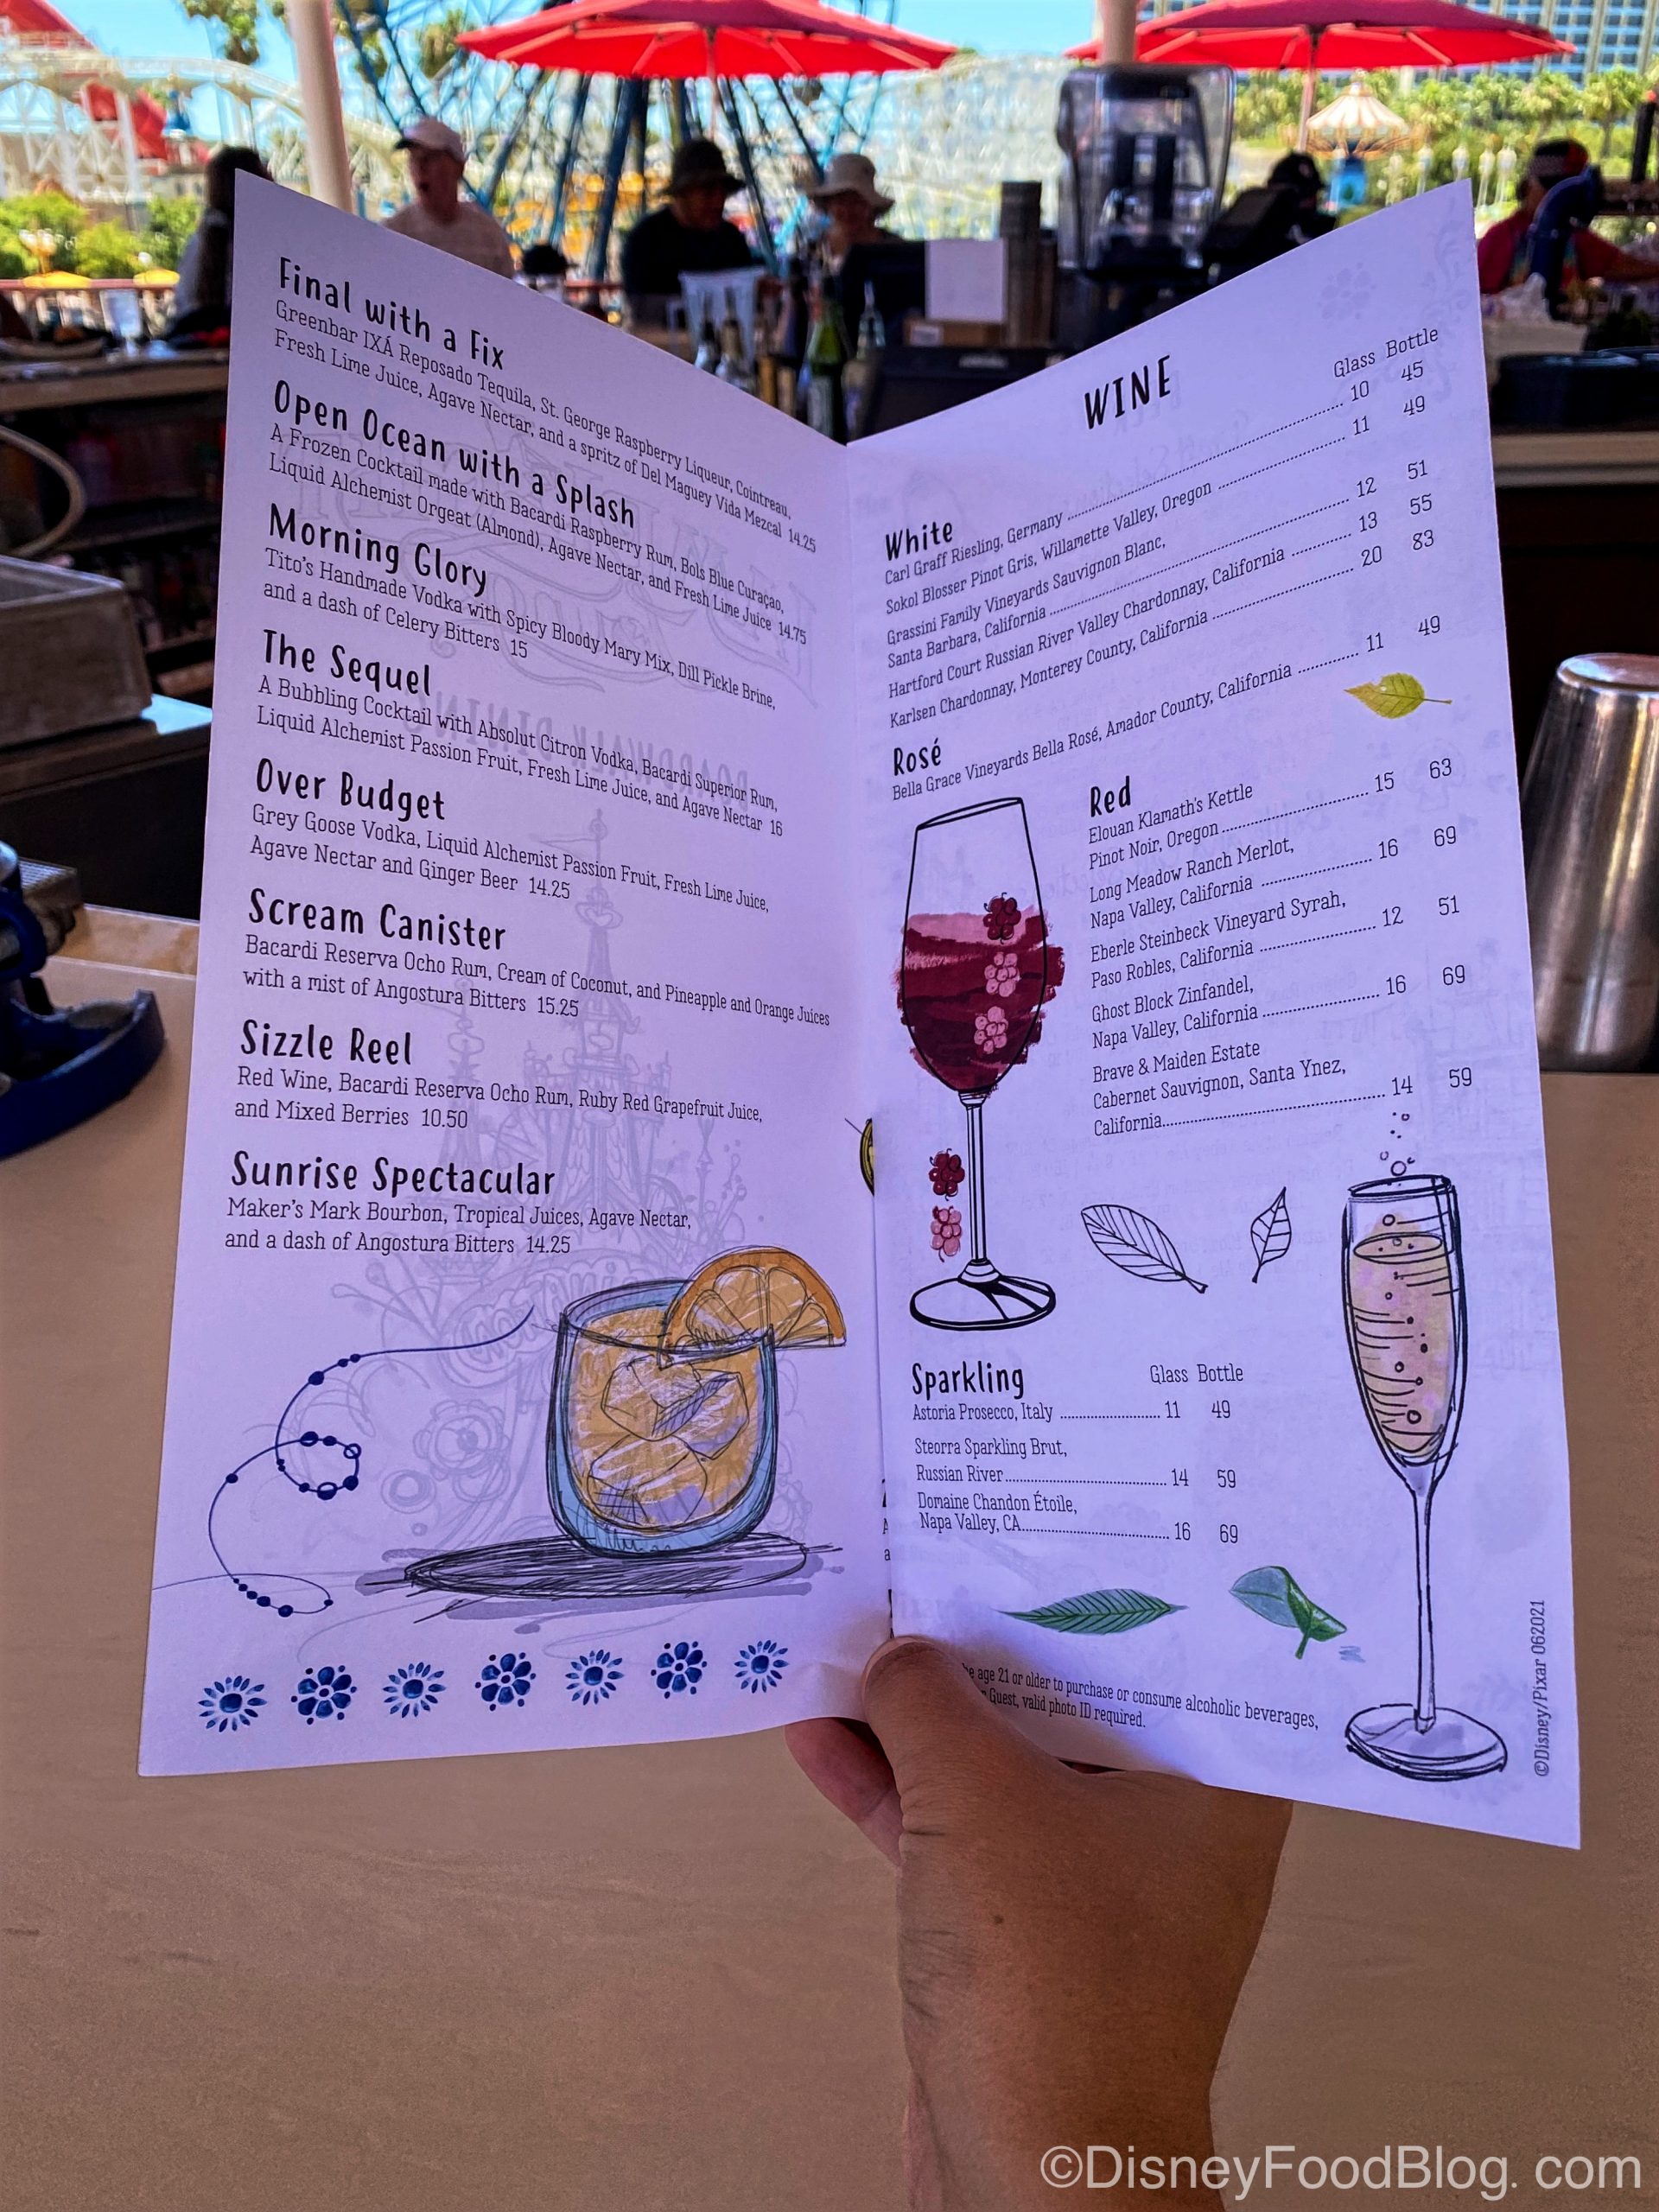 Final with a Fix
Greenbar IXÁ Reposado Tequila, St. George Raspberry Liqueur, Cointreau,
Fresh Lime Juice, Agave Nectar, and a spritz of Del Maguey Vida Mezcal 14.25
Open Ocean with a Splash
A Frozen Cocktail made with Bacardi Raspberry Rum, Bols Blue Curaçao,
Liquid Alchemist Orgeat (Almond), Agave Nectar, and Fresh Lime Juice 14.75
Morning Glory
Tito's Handmade Vodka with Spicy Bloody Mary Mix, Dill Pickle Brine,
and a dash of Celery Bitters 15
The Sequel
A Bubbling Cocktail with Absolut Citron Vodka, Bacardi Superior Rum,
Liquid Alchemist Passion Fruit, Fresh Lime Juice, and Agave Nectar 16
Over Budget
Grey Goose Vodka, Liquid Alchemist Passion Fruit, Fresh Lime Juice,
Agave Nectar and Ginger Beer 14.25
Scream Canister
Bacardi Reserva Ocho Rum, Cream of Coconut, and Pineapple and Orange Juices
with a mist of Angostura Bitters 15.25
Sizzle Reel
Red Wine, Bacardi Reserva Ocho Rum, Ruby Red Grapefruit Juice,
and Mixed Berries 10.50
Sunrise Spectacular
Maker's Mark Bourbon, Tropical Juices, Agave Nectar,
and a dash of Angostura Bitters 14.25
WINE
Glass Bottle
White
Carl Graff Riesling, Germany 10 45
Sokol Blosser Pinot Gris, Willamette Valley, Oregon 11 49
Grassini Family Vineyards Sauvignon Blanc,
Santa Barbara, California 12 51
Hartford Court Russian River Valley Chardonnay, California 13 55
Karlsen Chardonnay, Monterey County, California 20 83
Rosé
Bella Grace Vineyards Bella Rosé, Amador County, California 11 49
Red
Elouan Klamath's Kettle
Pinot Noir, Oregon 15 63
Long Meadow Ranch Merlot,
Napa Valley, California 16 69
Eberle Steinbeck Vineyard Syrah,
Paso Robles, California 12 51
Ghost Block Zinfandel,
Napa Valley, California 16 69
Brave & Maiden Estate
Cabernet Sauvignon, Santa Ynez,
California 14 59
Sparkling Glass Bottle
Astoria Prosecco, Italy 11 49
Steorra Sparkling Brut,
Russian River 14 59
Domaine Chandon Étoile,
Napa Valley, CA 16 69
age 21 or older to purchase or consume alcoholic beverages,
Guest, valid photo ID required.
©Disney/Pixar 062021
©DisneyFoodBlog. com